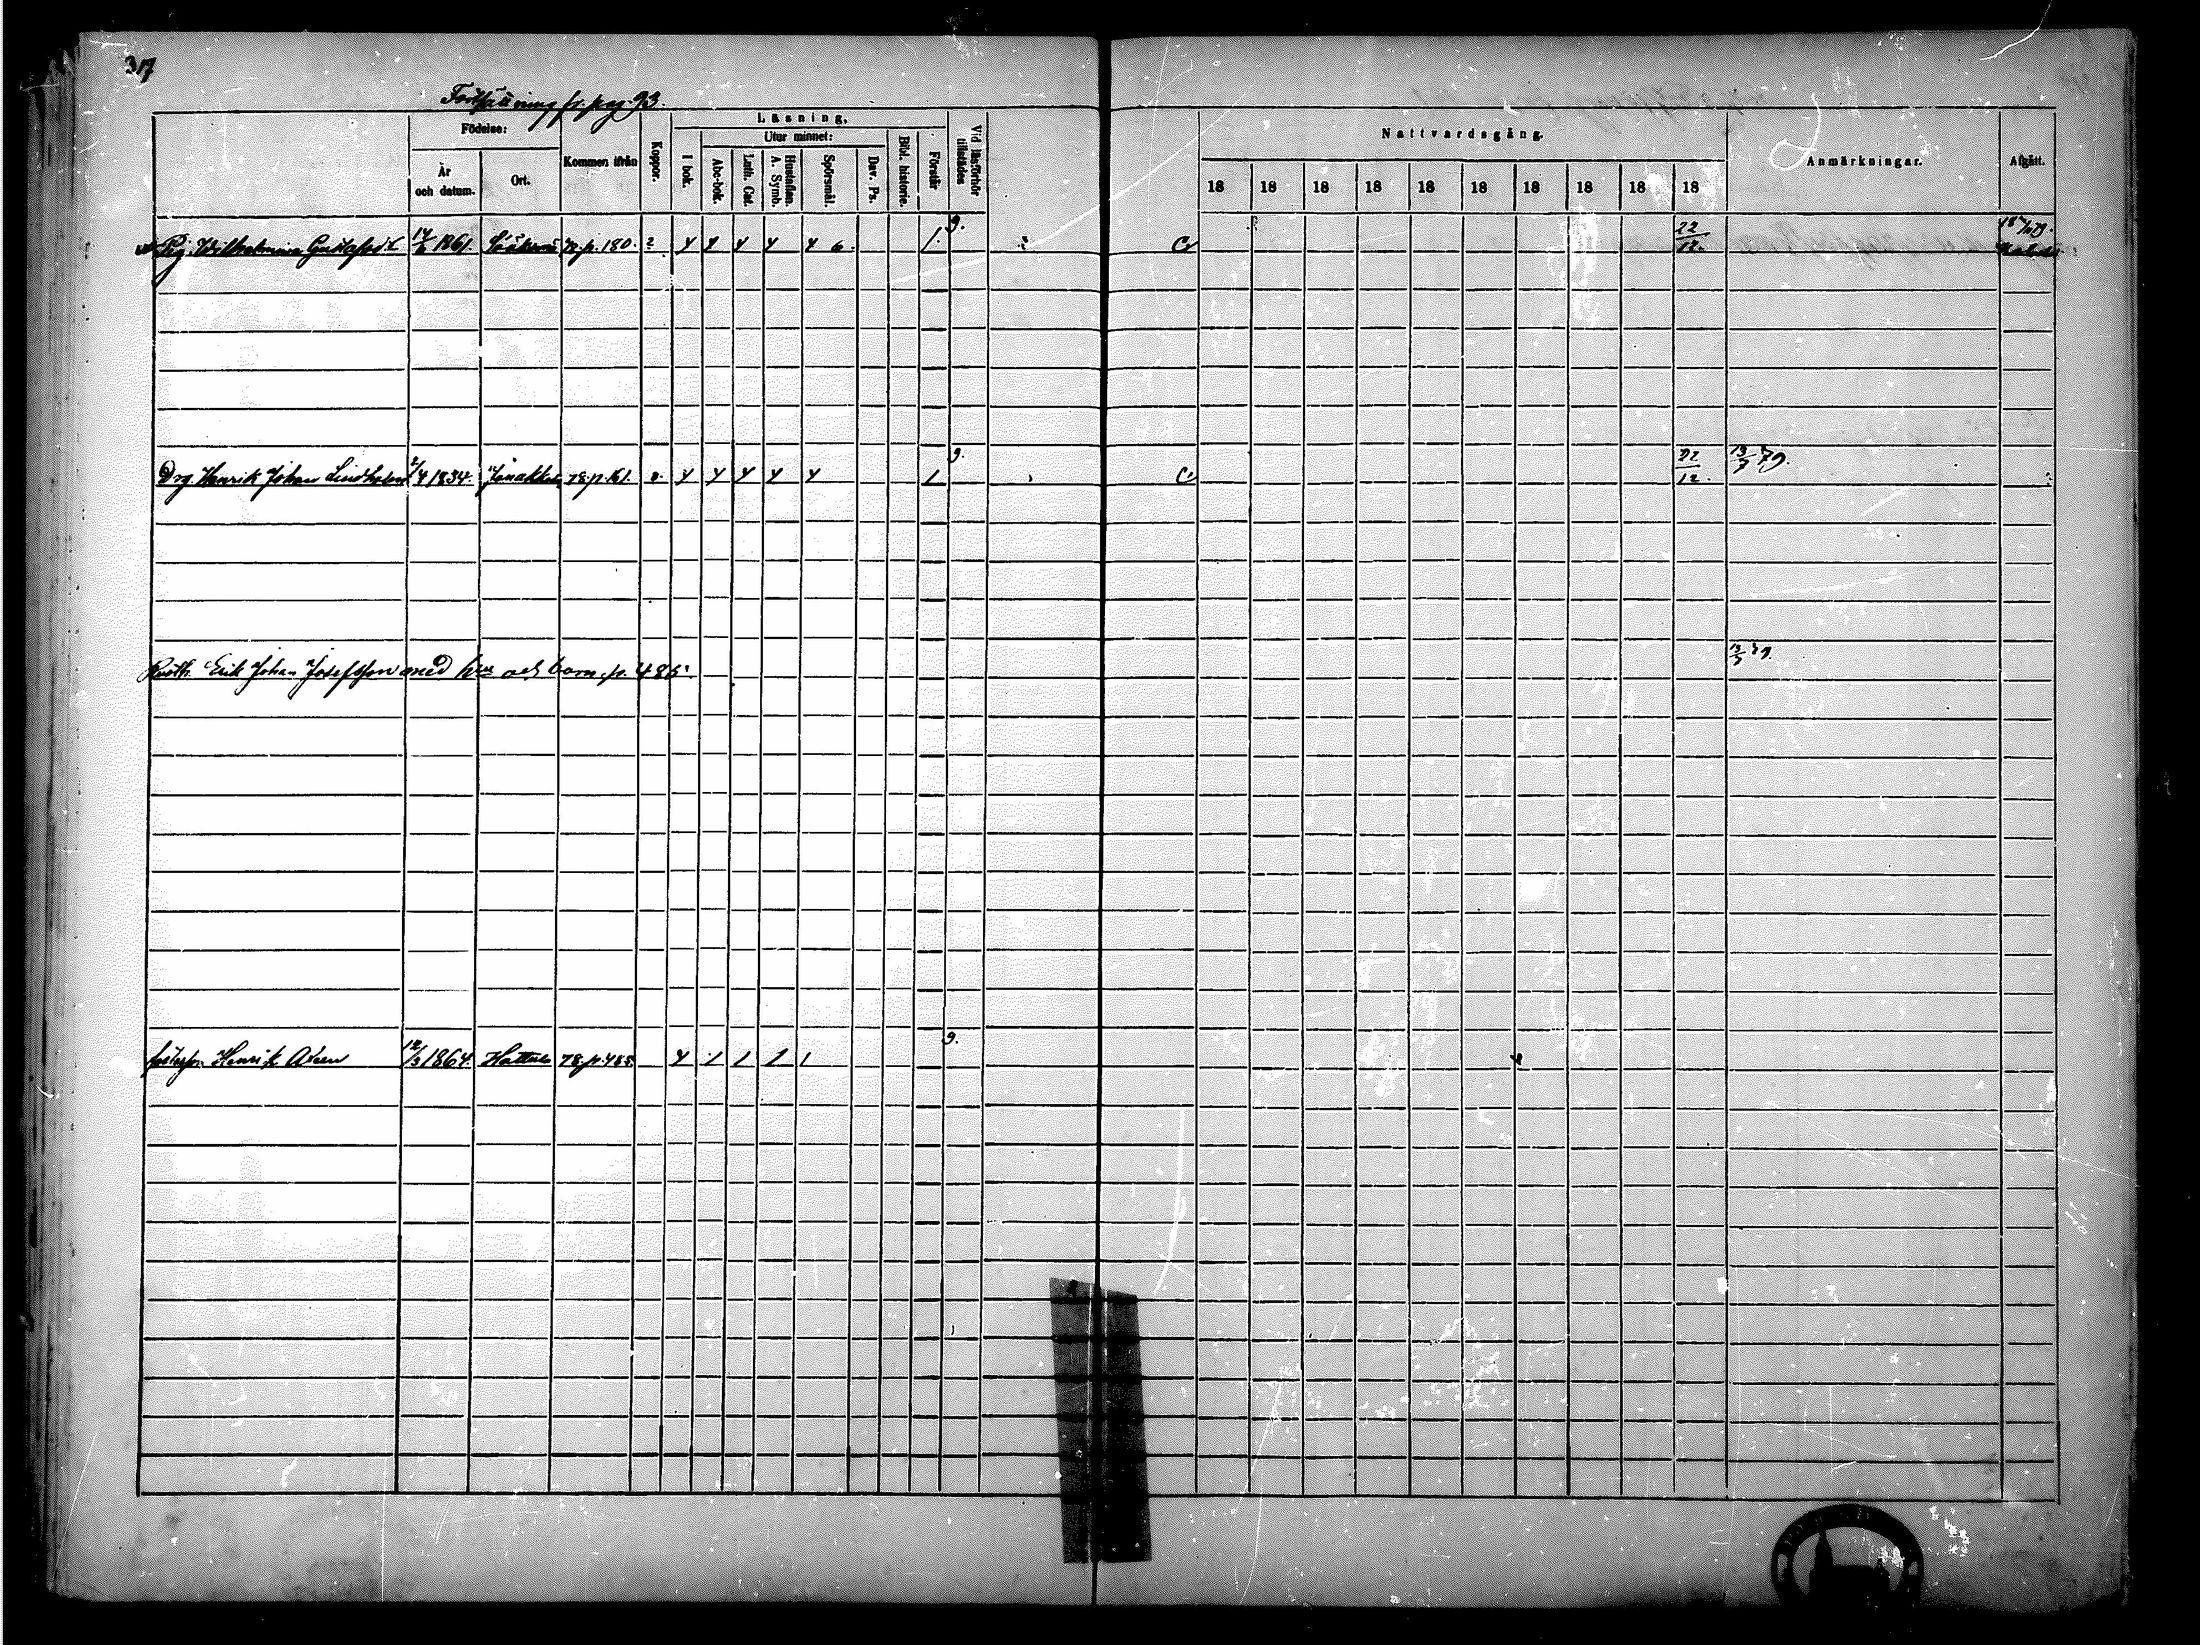 317
Fortsättning fr. pag. 93.
Födelse:
År och datum.
Ort.
Kommen ifrån
Koppor.
Läsning.
I bok.
Utur minnet:
Abc-bok.
Luth. Cat.
Hustaflan. A. Symb.
Spörsmål.
Dav. Ps.
Bibl. historie.
Förstår
Vid läsförhör tillstädes
Nattvardsgång.
18 18 18 18 18 18 18 18 18 18
Anmärkningar.
Afgått.
Pig. Wilhelmina Gustafsd:r 1861. 78.p.180. 9. 22/12.
Drg. Henrik Johan Lindholm 2/4 1834. Janakkala 78.p.161. 9. 22/12. 13/7 79.
Erik Johan Josefsson med hru och barn, p. 486.
fosterson Henrik 12/3 1864. Hattula 78.p.485. 9.